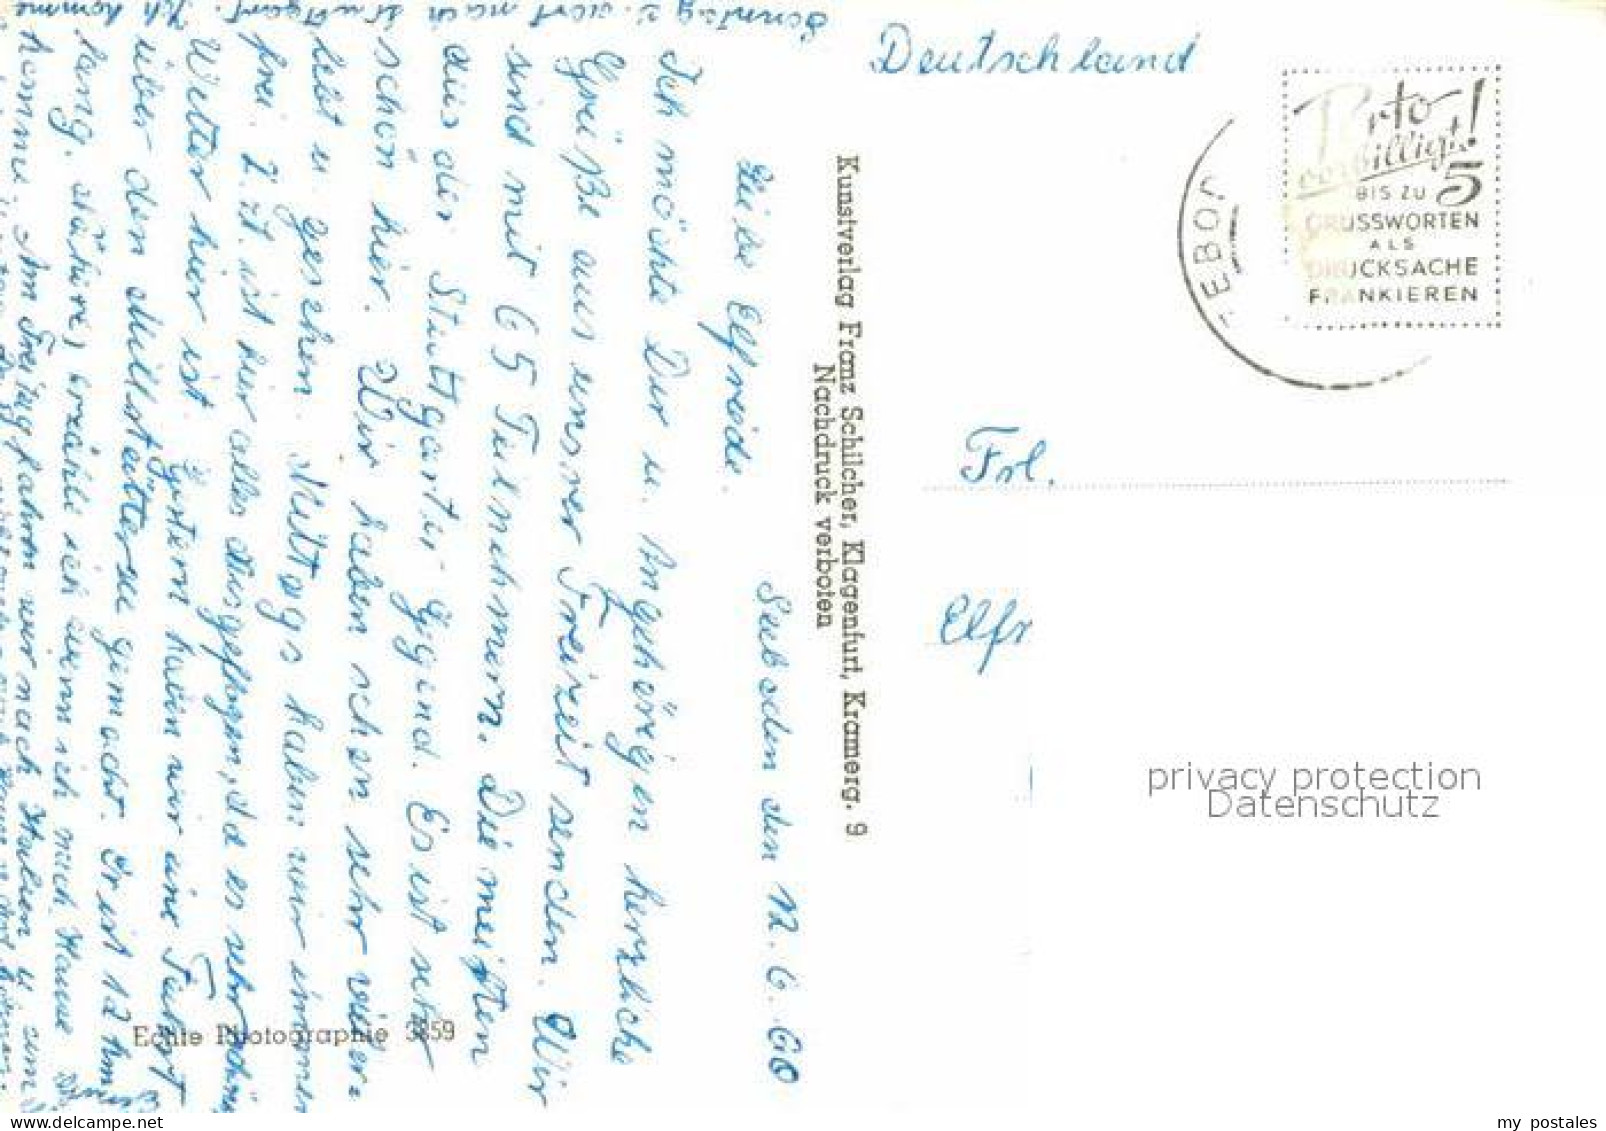 Sonntag u. dort nach Stuttgart. Ich komme
Seeboden den 12.6.60
Liebe Elfriede.
Ich möchte Dir u. Angehörigen herzliche
Grüße aus unsrer Freizeit senden. Wir
sind mit 65 Teilnehmern. Die meisten
aus der Stuttgarter Gegend. Es ist sehr
schön hier. Wir haben schon sehr viel er-
lebt u. gesehen. Mittags haben wir immer
frei. Z. Zt. ist hier alles ausgeflogen, da es sehr schön
Wetter hier ist. Gestern haben wir eine Fahrt
über den Millstättersee gemacht. Er ist 12 km
lang. erzähle ich wenn ich nach Hause
komme. Am Freitag fahren wir nach Italien u. am
Kunstverlag Franz Schilcher, Klagenfurt, Kramerg. 9
Nachdruck verboten
Echte Photographie 3859
Deutschland
Porto
verbilligt!
BIS ZU 5
GRUSSWORTEN
ALS
DRUCKSACHE
FRANKIEREN
EEBOD
Frl.
Elfr
privacy protection
Datenschutz
my postales